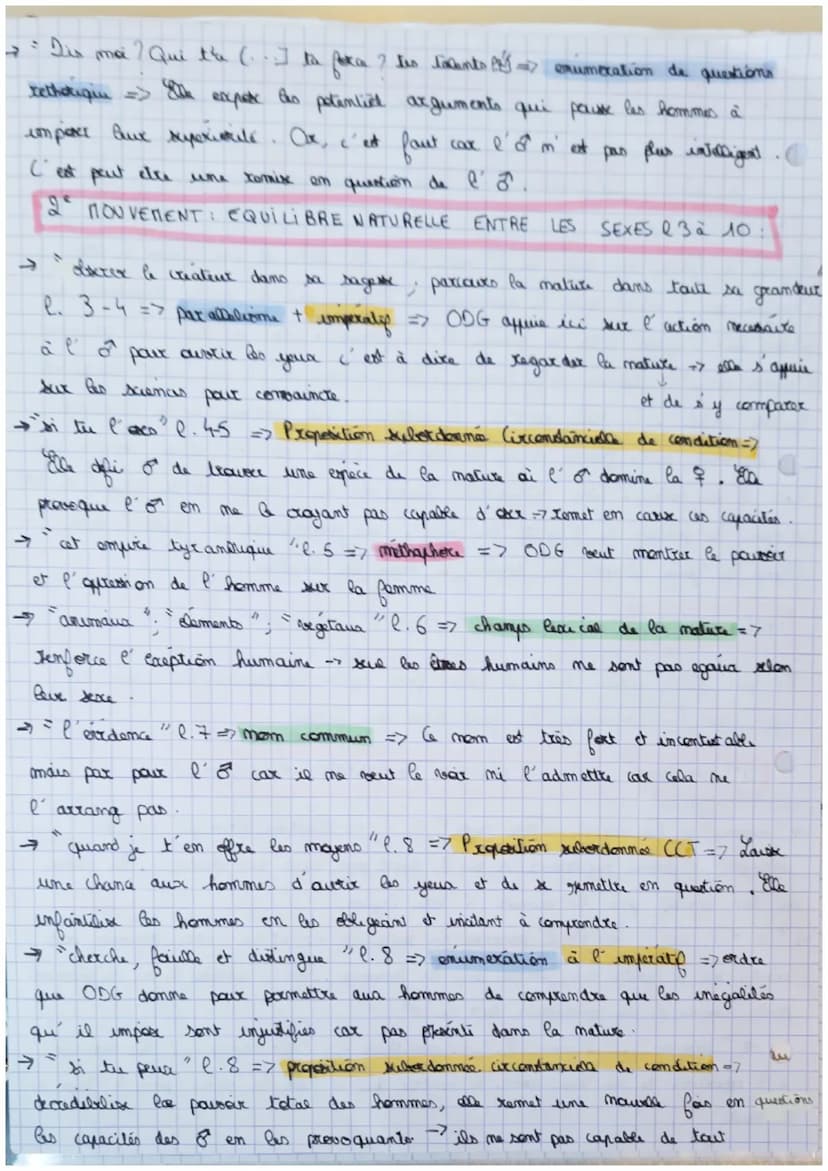 → "Dis moi ? Qui t'a (...] ta force ? tes talents ?" => énumeration de questions
rethorique => Elle expose les potentiel arguments qui pousse les hommes à
imposer leur superiorité. Or, c'est faut car l'♂ n'est pas plus intelligent.
C'est peut etre une remise en question de l'♂.
2e MOUVEMENT : EQUILIBRE NATURELLE ENTRE LES SEXES l 3 à 10 :
→ "observe le créateur dans sa sagesse ; parcours la nature dans toute sa grandeur
l. 3-4 => parallélisme + imperatif => ODG appuie ici sur l'action necessaire
à l'♂ pour ouvrir les yeux c'est à dire de regarder la nature → elle s'appuie
sur les sciences pour convaincre. et de s'y comparer
→ "si tu l'oses" l. 4-5 => Proposition subordonné Circonstancielle de condition =>
Elle défi ♂ de trouver une espèce de la nature où l'♂ domine la ♀. Elle
provoque l'♂ en ne le croyant pas capable d'oser → remet en cause ces capacités.
→ "cet empire tyrannique" l. 5 => méthaphore => ODG veut montrer le pouvoir
et l'oppression de l'homme sur la femme
→ "animaux" ; "élements" ; "végétaux" l. 6 => champs lexical de la nature =>
renforce l'exeption humaine → seul les êtres humains ne sont pas egaux selon
leur sexe.
→ "l'évidence" l. 7 => nom commun => Ce nom est très fort et incontestable
mais pas pour l'♂ car il ne veut le voir ni l'admettre car cela ne
l'arrang pas.
→ "quand je t'en offre les moyens" l. 8 => Proposition subordonnée CCT => Laisse
une chance aux hommes d'ouvrir les yeux et de se remettre en question. Elle
infantilise les hommes en les obligeant et incitant à comprendre.
→ "cherche, fouille et distingue" l. 8 => énumeration à l'imperatif => ordre
que ODG donne pour permettre aux hommes de comprendre que les inegalités
qu'il impose sont injustifiés car pas présenté dans la nature.
→ "si tu peux" l. 8 => proposition subordonnée circonstanciell de condition =>
decredibilise le pouvoir total des hommes, elle remet une nouvelle fois en questions
les capacités des ♂ en les provoquants → ils ne sont pas capable de tout